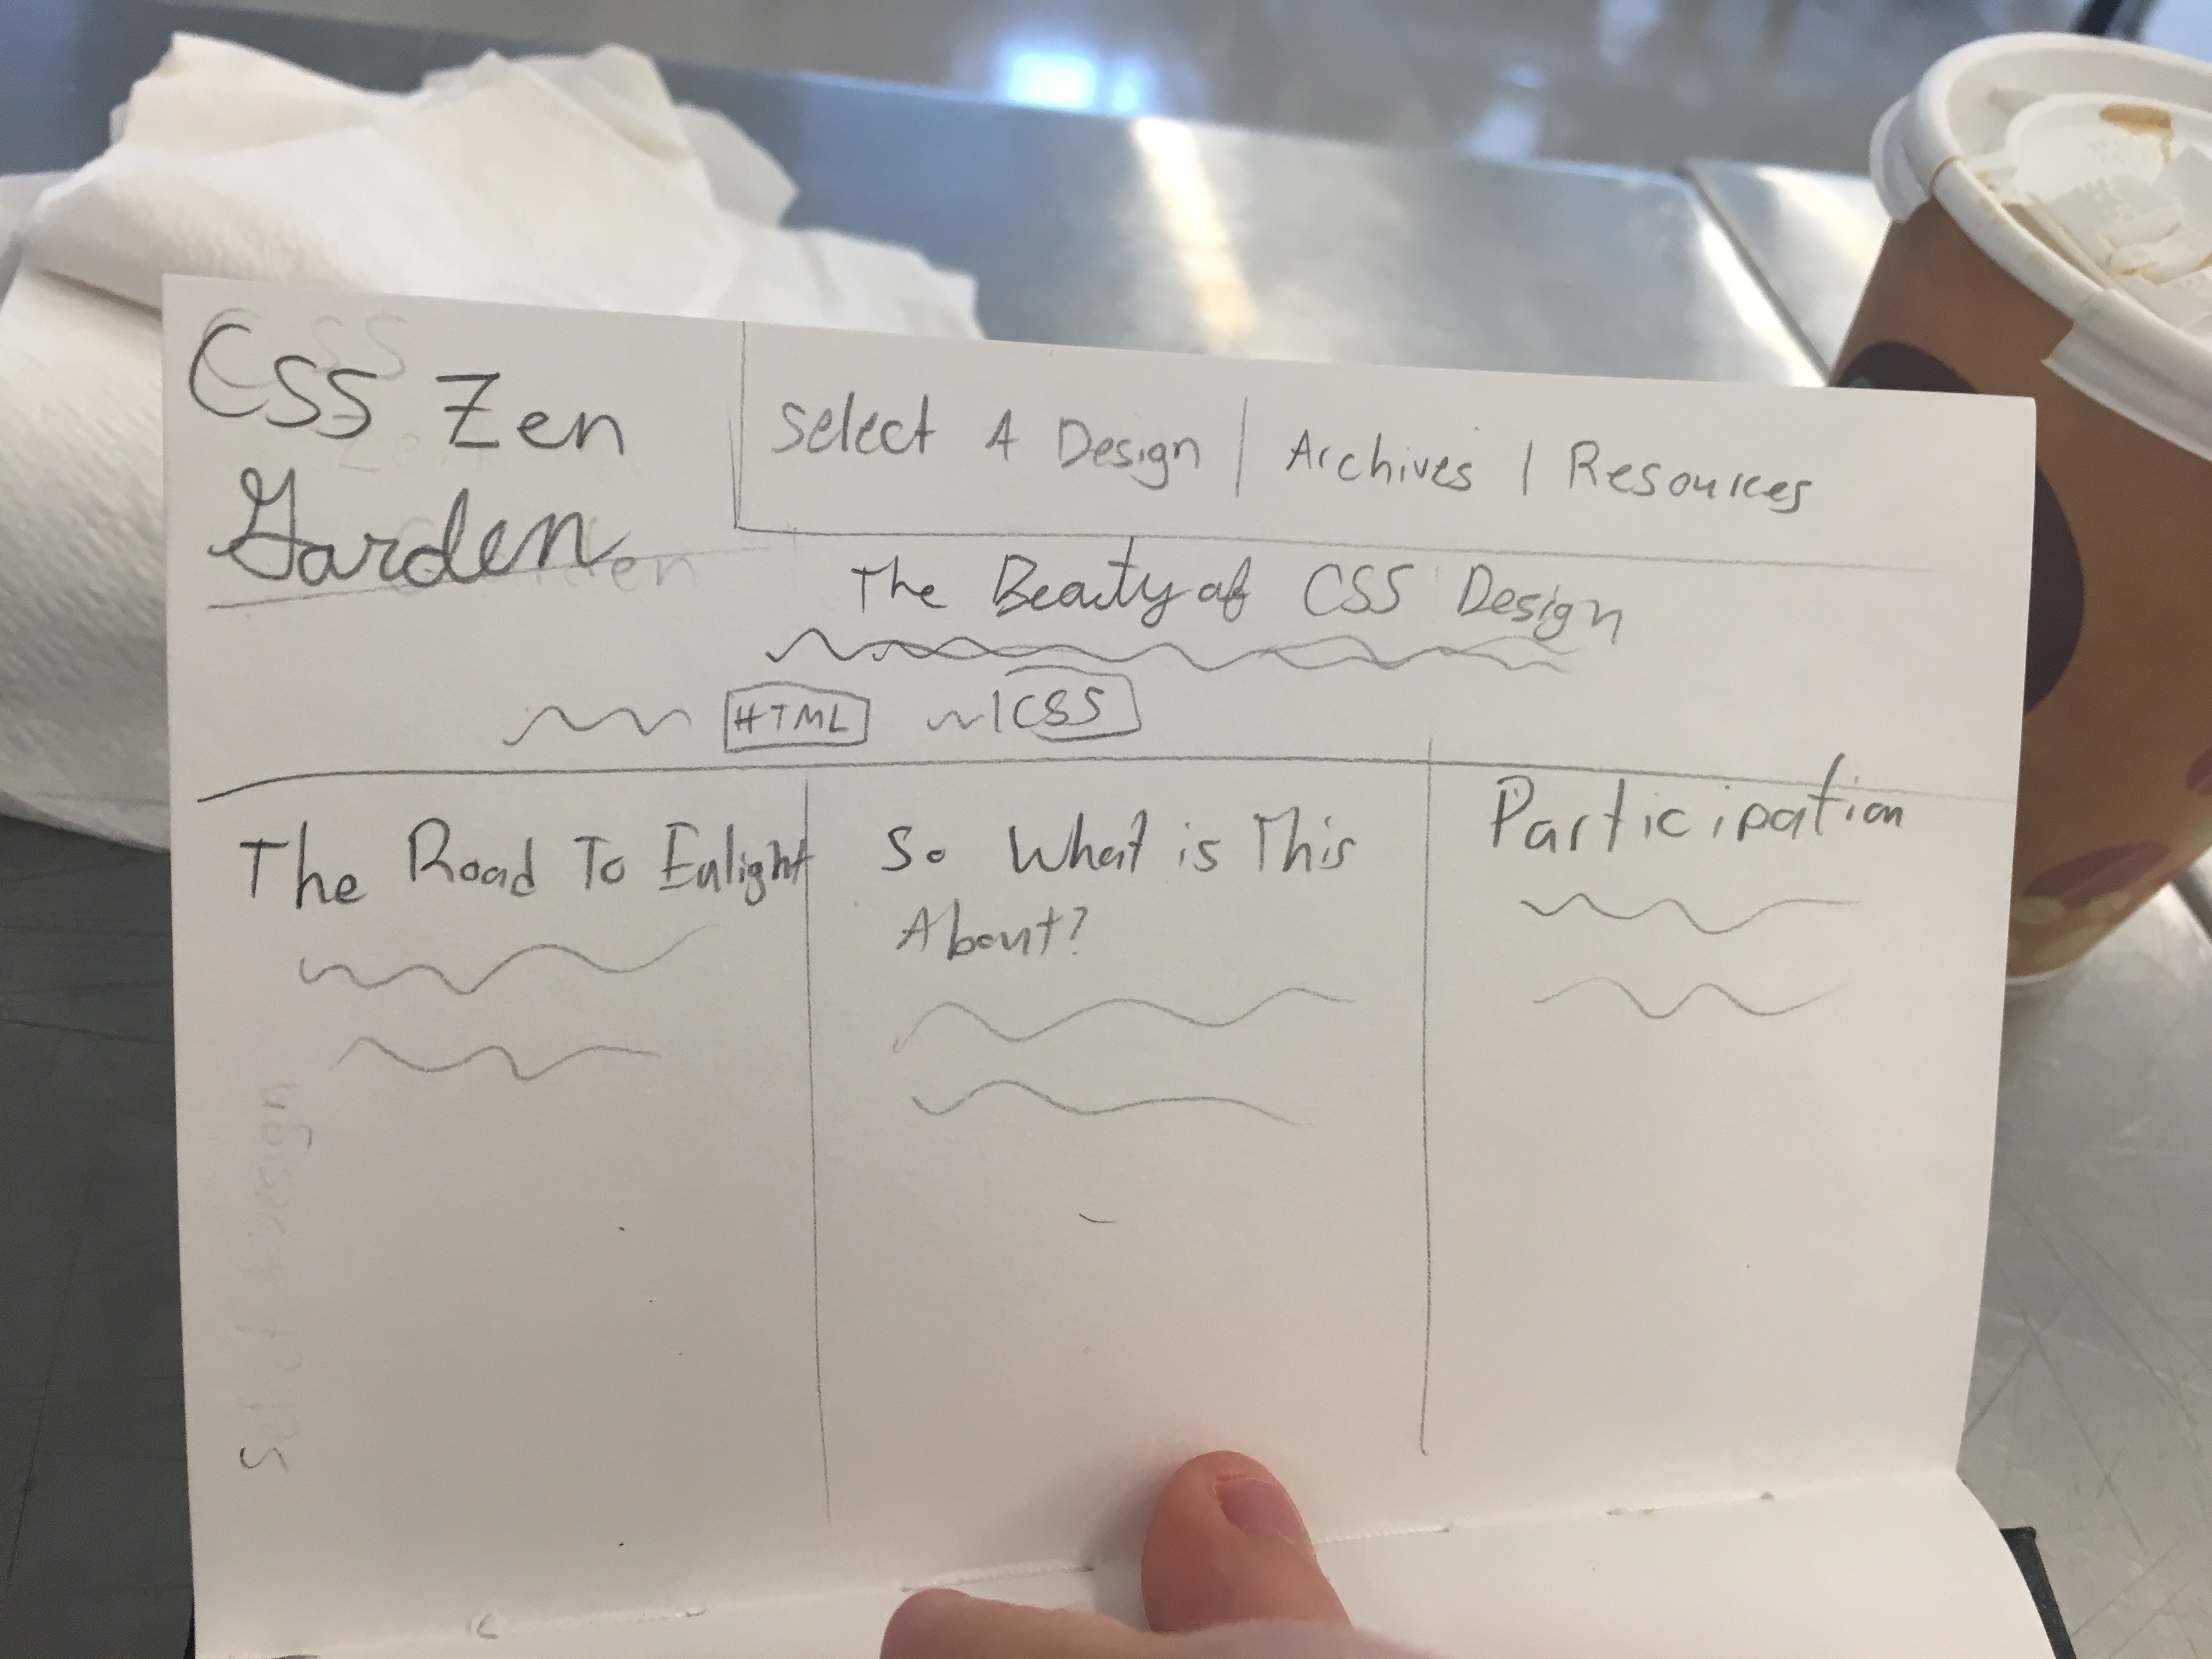 CSS Zen
Garden
Select A Design | Archives | Resources
The Beauty of CSS Design
HTML
CSS
The Road To Enlight
So What is This
About?
Participation